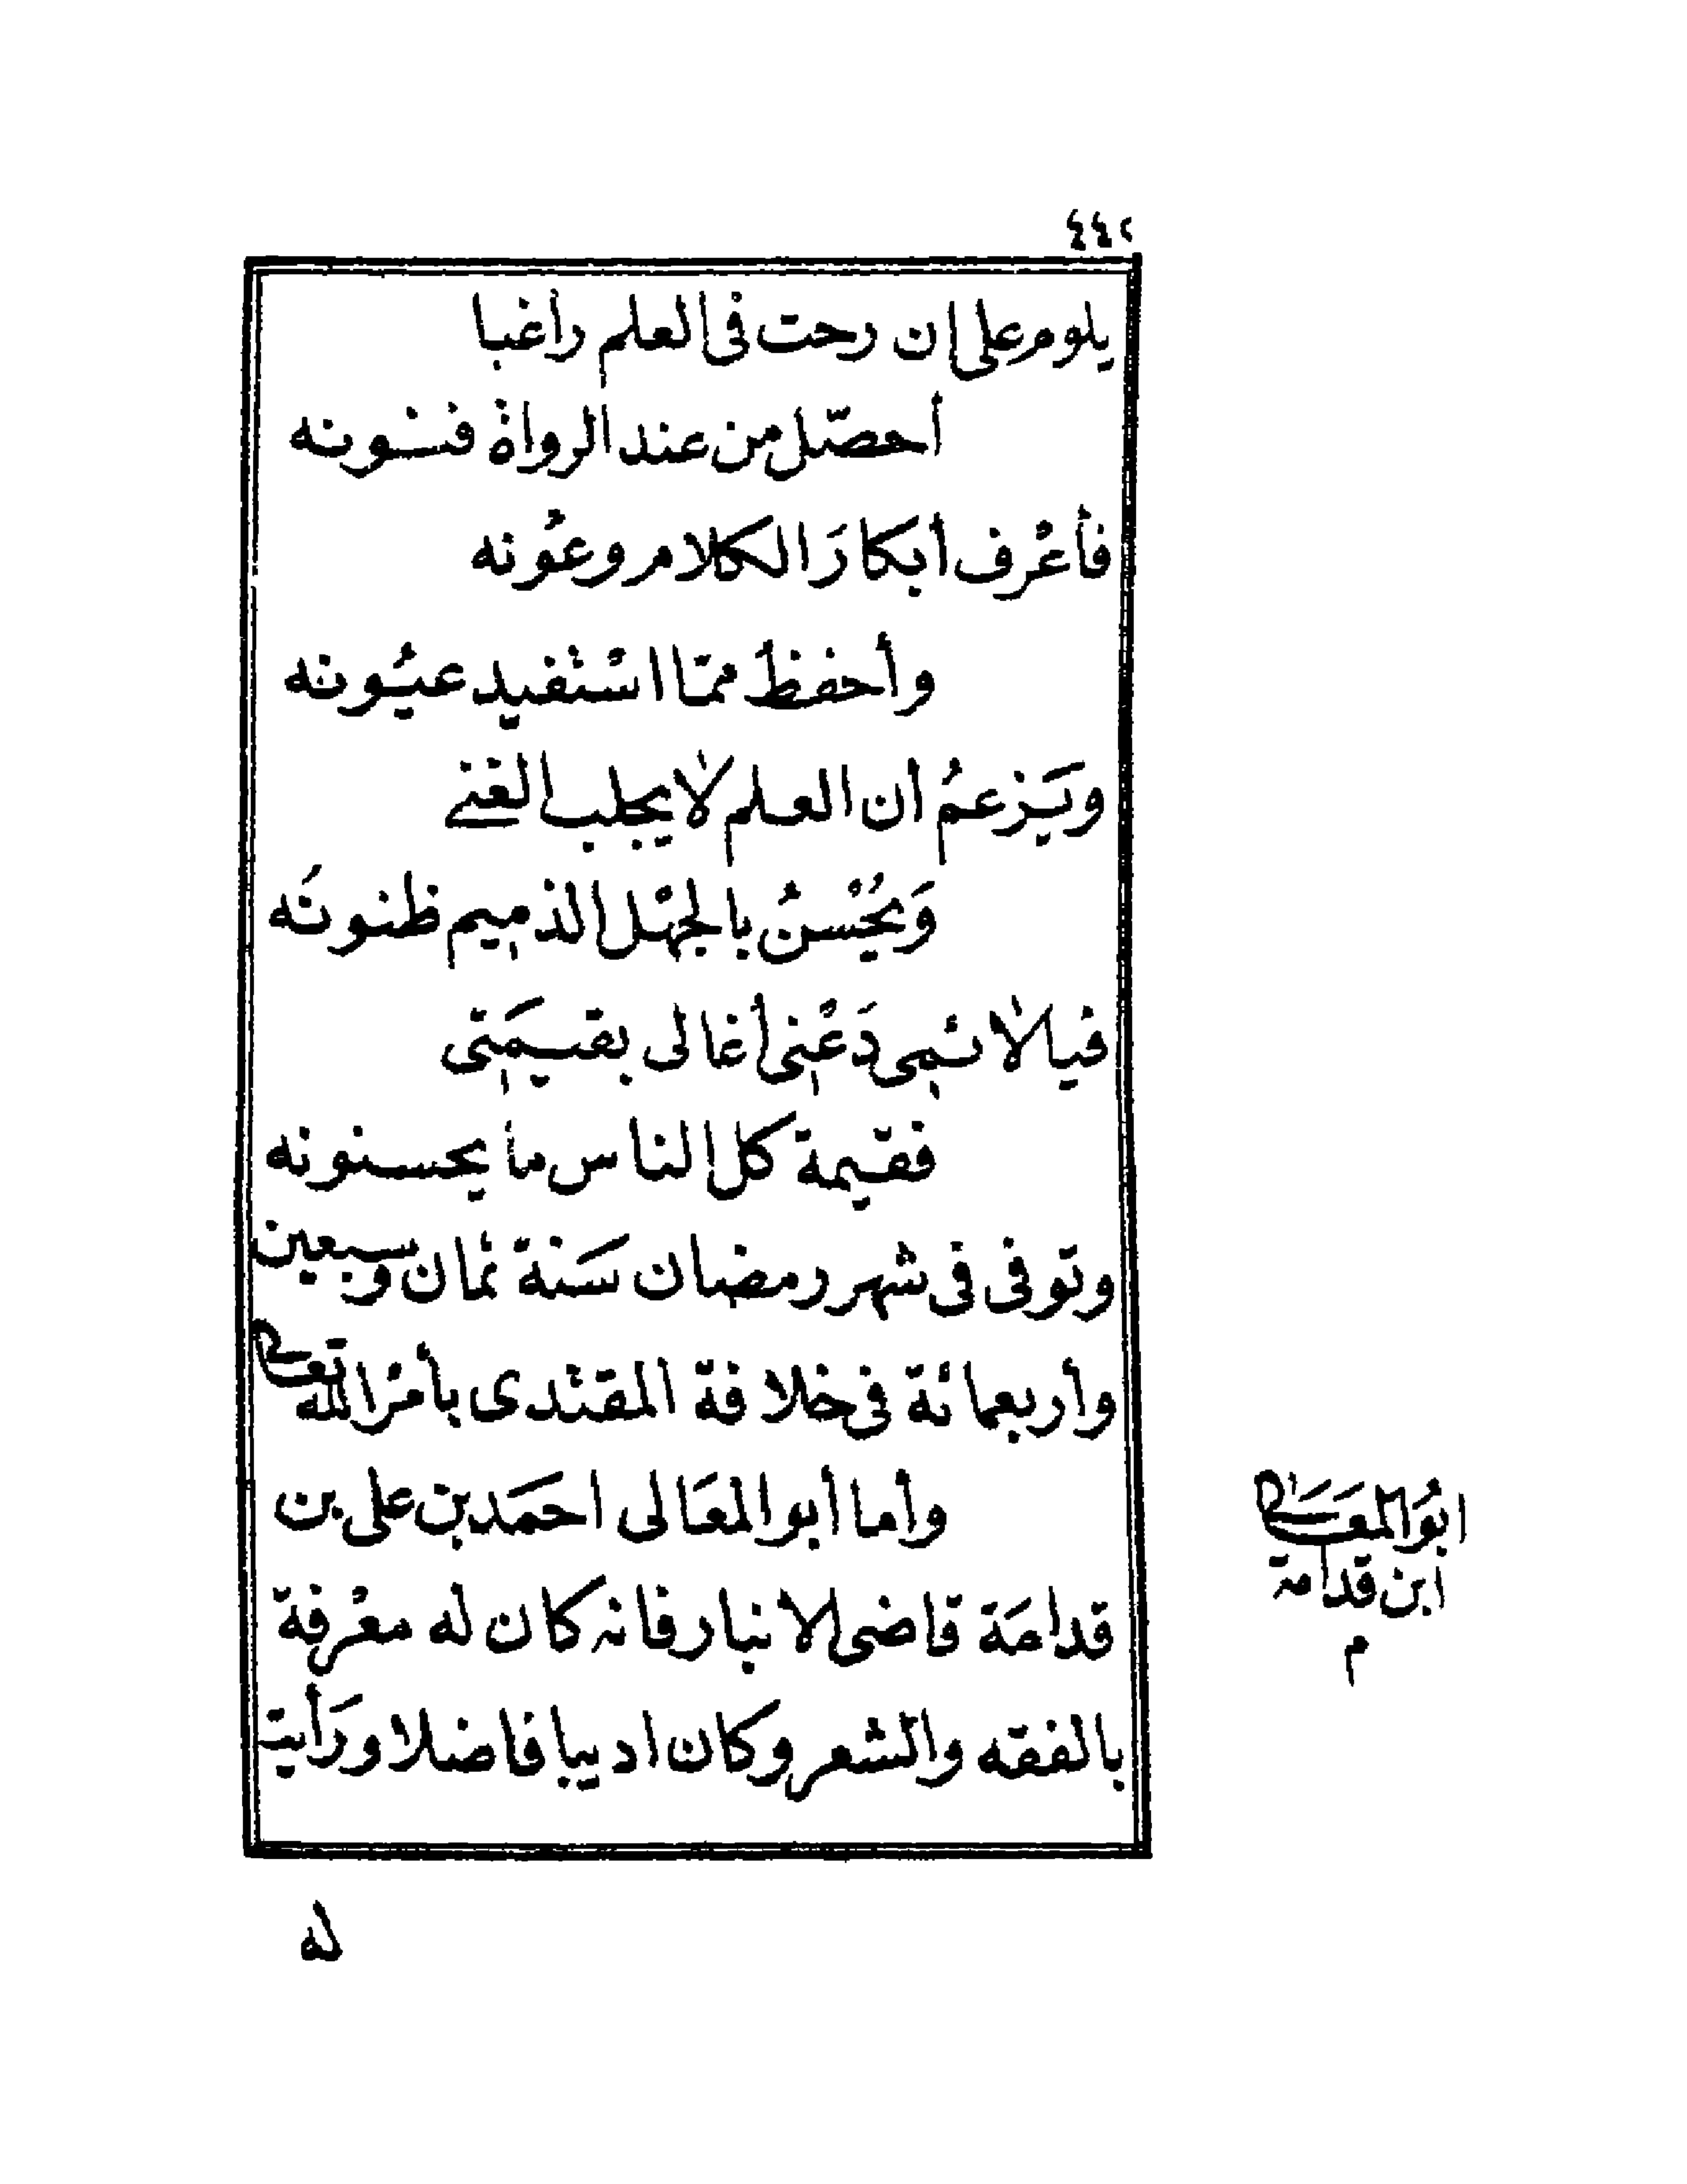 ٤٤٢
يلوم على ان رحت فى العلم رأغبا
أحصّل من عند الرواة فنونه
فأعْرف أبكارَ الكلام وعُونه
وأحفظُ ممّا اسْتفيد عيُونه
ويَزعمُ أن العلم لا يجلب الغنى
وَيُحْسنُ بالجهْل الذميم ظنونَه
فيا لائمى دَعْنى أغالى بقيمَتى
فقيمة كل الناس ما يحسنونه
وتوفى فى شهر رمضان سَنة ثمان وسبعين
وأربعمائة فى خلافة المقتدى بأمْر الله تعالى
وأما أبو المعَالى احمَد بن على بن
قدامَة قاضى الانبار فانه كان له معْرفة
بالفقه والشعر وكان اديبا فاضلا ورَأيت
ابُو المعَالى
ابن قدامة
م
له